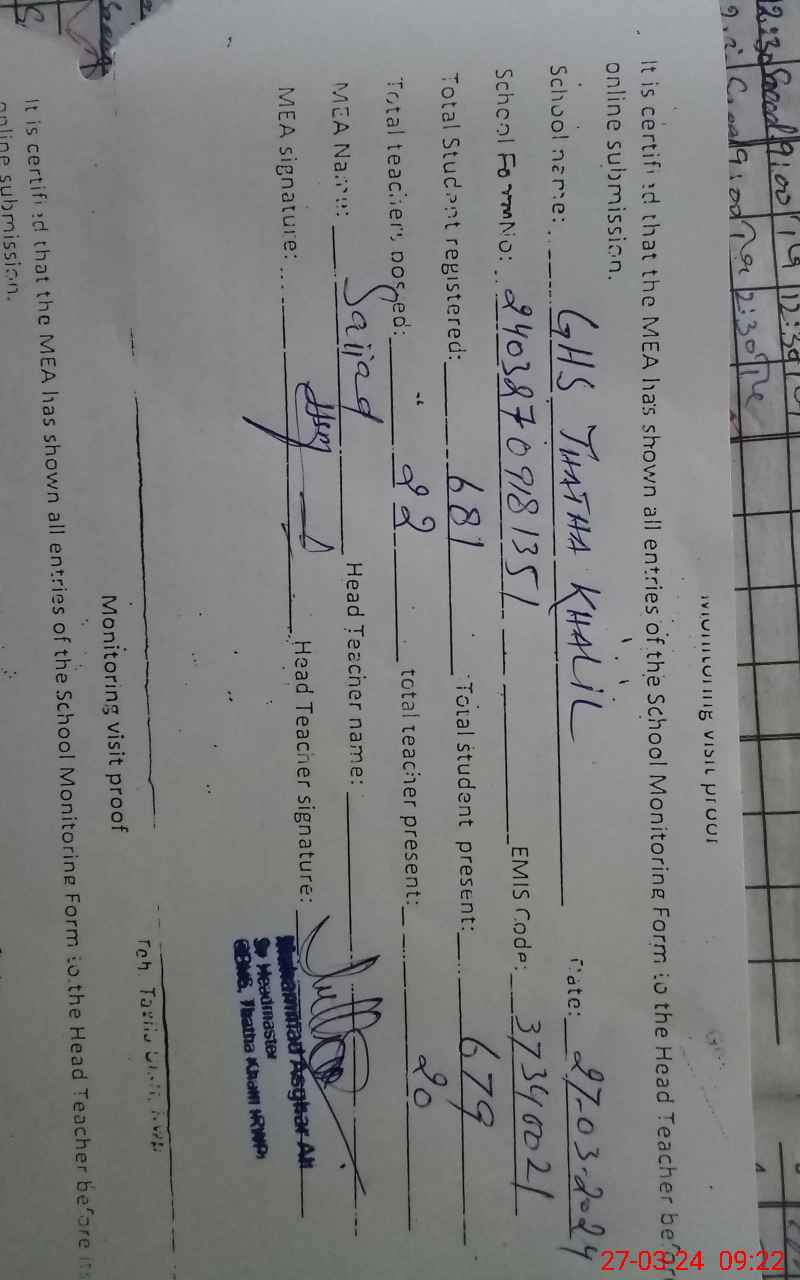 Monitoring visit proof
It is certified that the MEA has shown all entries of the School Monitoring Form to the Head Teacher before
online submission.
School name: GHS THATHA KHALIL Date: 27-03-2024
School Form No: 2403270918351 EMIS Code: 37340021
Total Student registered: 681 Total student present: 679
Total teachers posted: 22 total teacher present: 20
MEA Name: Sajjad Head Teacher name:
MEA signature: Head Teacher signature:
Muhammad Asghar Ali
Sr Headmaster
Thatha Khalil (RWP)
Monitoring visit proof
It is certified that the MEA has shown all entries of the School Monitoring Form to the Head Teacher before its
online submission.
12:30 9:00
9:00 12:30
27-03-24 09:22